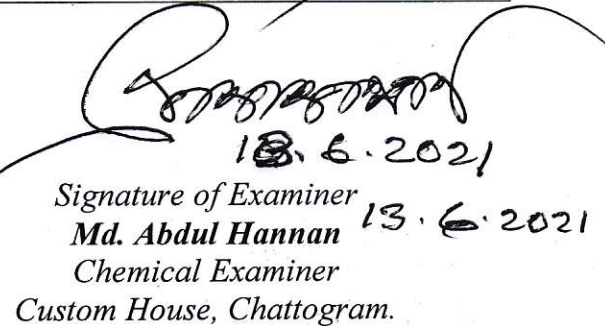 13. 6. 2021
Signature of Examiner
13. 6. 2021
Md. Abdul Hannan
Chemical Examiner
Custom House, Chattogram.